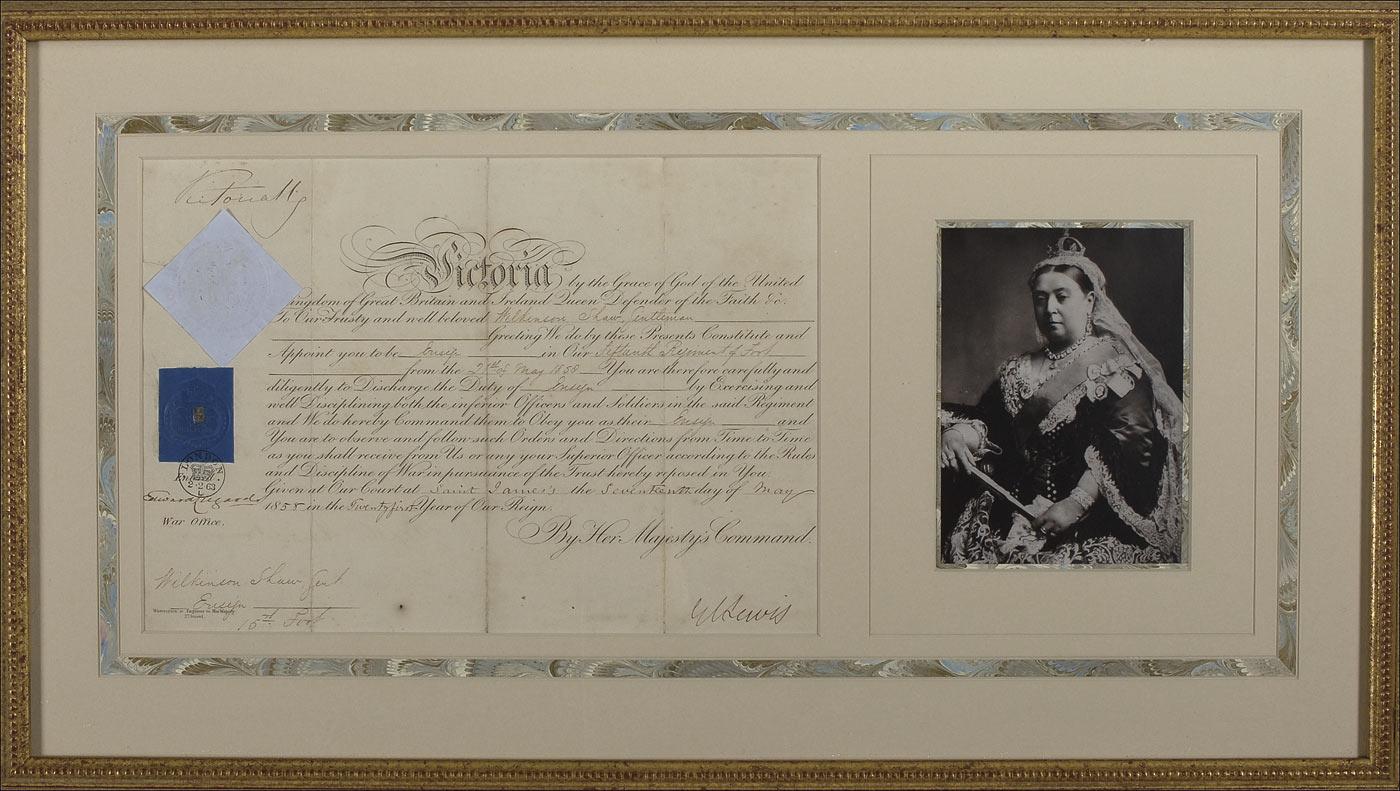 Victoria R
Victoria by the Grace of God of the United
Kingdom of Great Britain and Ireland Queen Defender of the Faith &c.
To Our Trusty and well beloved Wilkinson Shaw, Gentleman
Greeting We do by these Presents Constitute and
Appoint you to be Ensign in Our Fifteenth Regiment of Foot
from the of May 1858 You are therefore carefully and
diligently to Discharge the Duty of Ensign by Exercising and
well Disciplining both the inferior Officers and Soldiers in the said Regiment
and We do hereby Command them to Obey you as their Ensign and
You are to observe and follow such Orders and Directions from Time to Time
as you shall receive from Us or any your Superior Officer according to the Rules
and Discipline of War in pursuance of the Trust hereby reposed in You.
Given at Our Court at Saint James's the Seventeenth day of May
1858 in the Twenty first Year of Our Reign.
By Her Majesty's Command.
LONDON
Entered
2·2 63
Edward
War Office.
Wilkinson Shaw, Gent
Ensign
15th Foot
G C Lewis